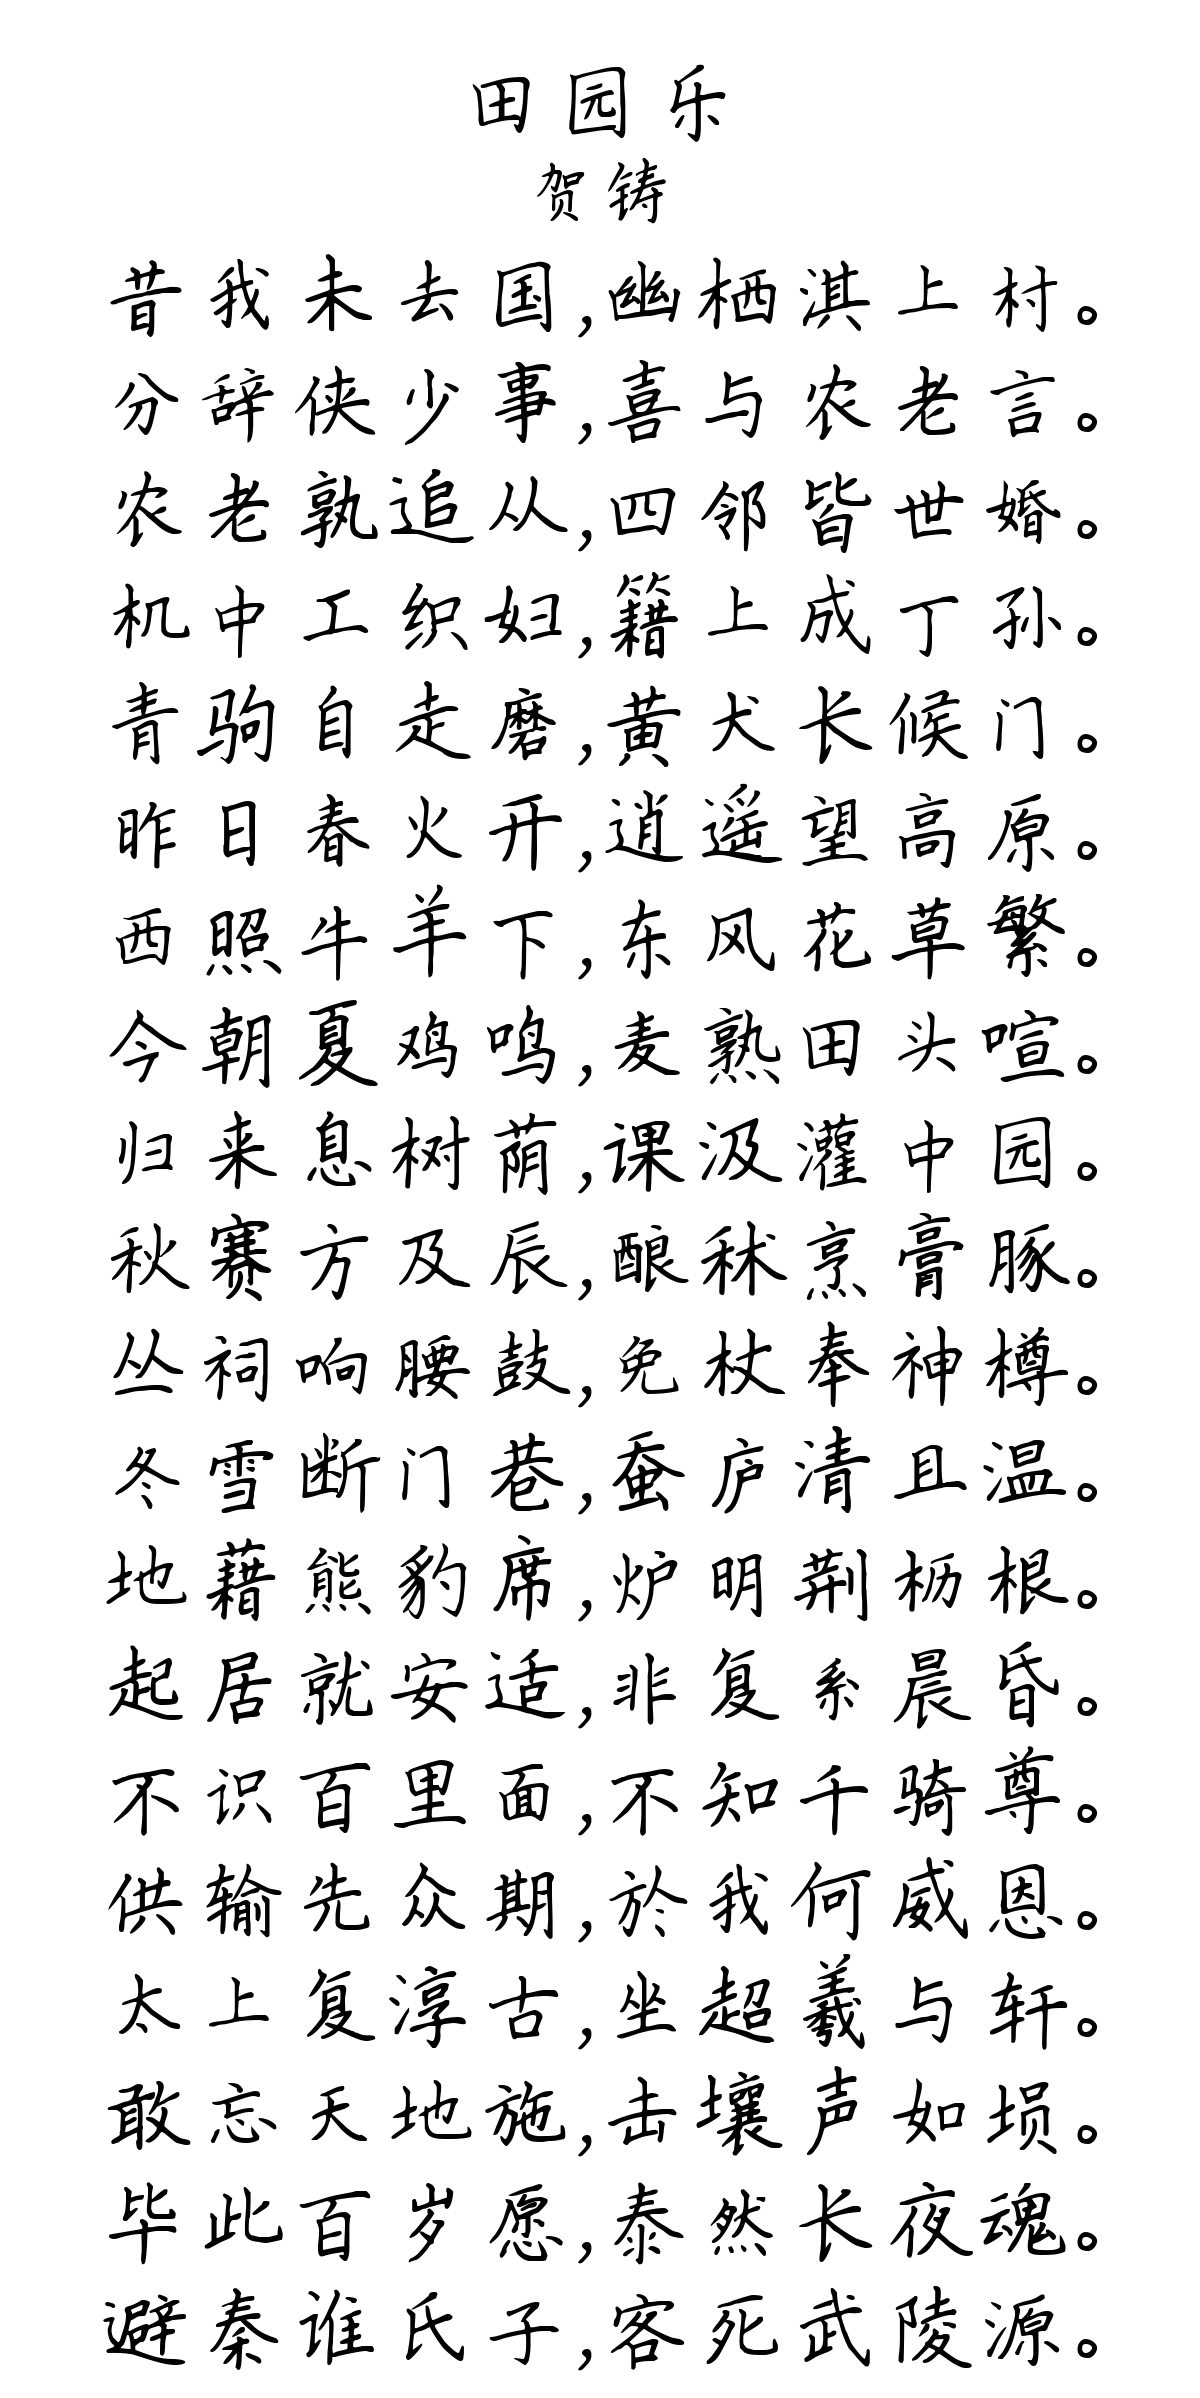 田园乐
贺铸
昔我未去国,幽栖淇上村。
分辞侠少事,喜与农老言。
农老孰追从,四邻皆世婚。
机中工织妇,籍上成丁孙。
青驹自走磨,黄犬长候门。
昨日春火开,逍遥望高原。
西照牛羊下,东风花草繁。
今朝夏鸡鸣,麦熟田头喧。
归来息树荫,课汲灌中园。
秋赛方及辰,酿秫烹膏豚。
丛祠响腰鼓,免杖奉神樽。
冬雪断门巷,蚕庐清且温。
地藉熊豹席,炉明荆枥根。
起居就安适,非复系晨昏。
不识百里面,不知千骑尊。
供输先众期,於我何威恩。
太上复淳古,坐超羲与轩。
敢忘天地施,击壤声如埙。
毕此百岁愿,泰然长夜魂。
避秦谁氏子,客死武陵源。